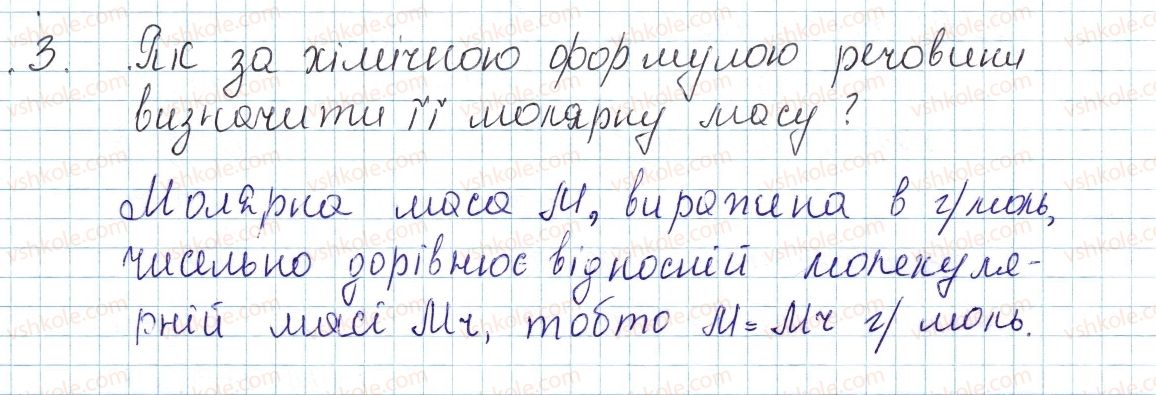 3. Як за хімічною формулою речовини
визначити її молярну масу?
Молярна маса М, виражина в г/моль,
чисельно дорівнює відносній молекуля-
рній масі Мч, тобто М = Мч г/моль.